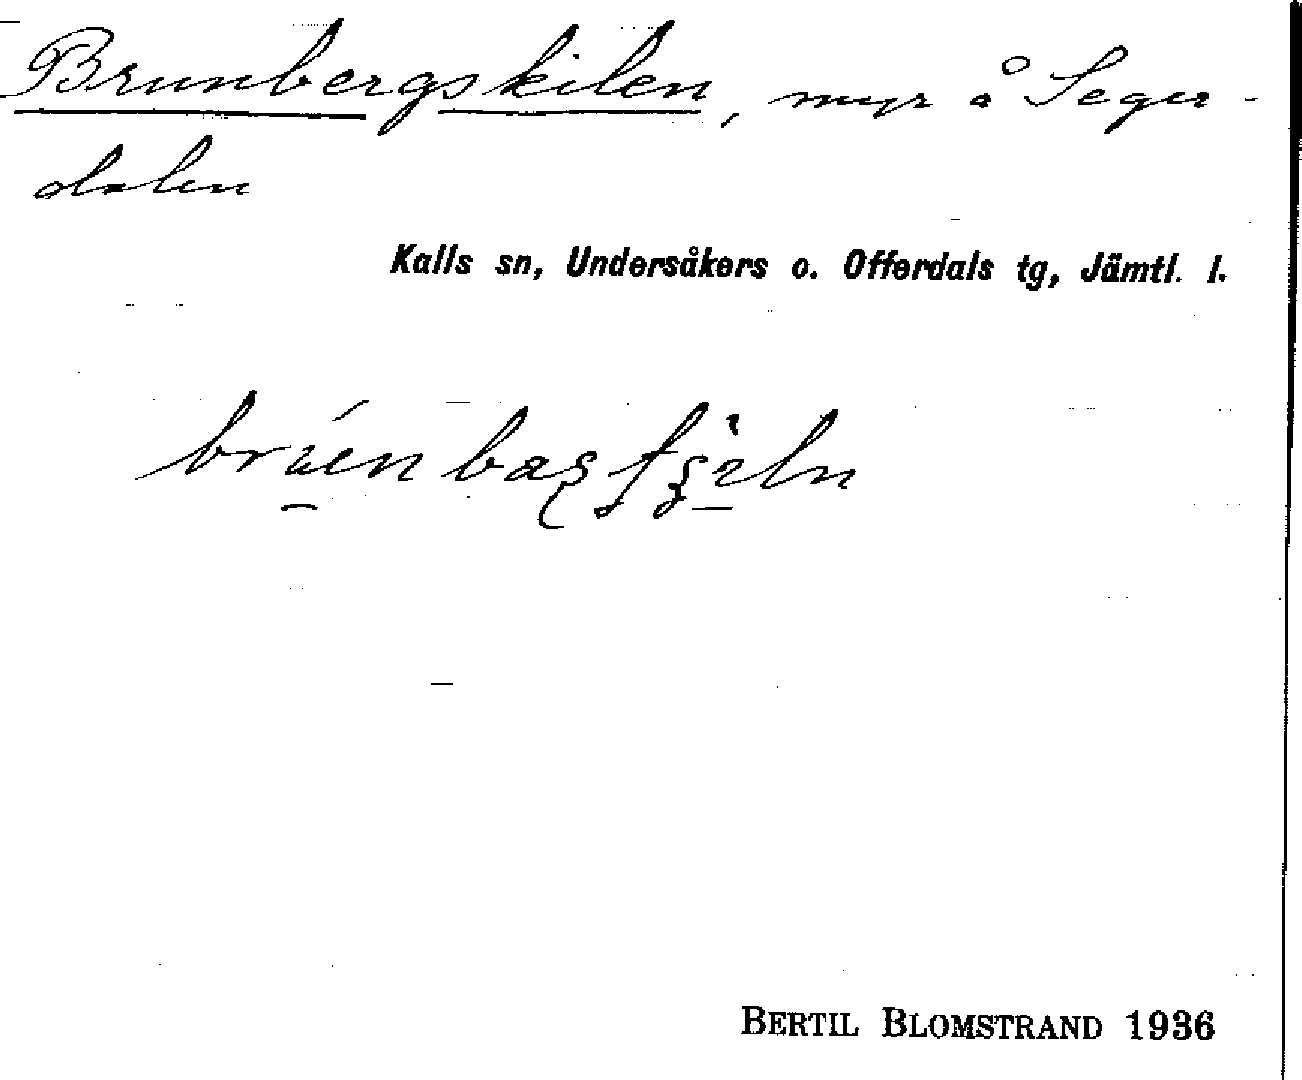 Brunbergskilen, myr å Seger-
dalen
Kalls sn, Undersåkers o. Offerdals tg, Jämtl. l.
BERTIL BLOMSTRAND 1936